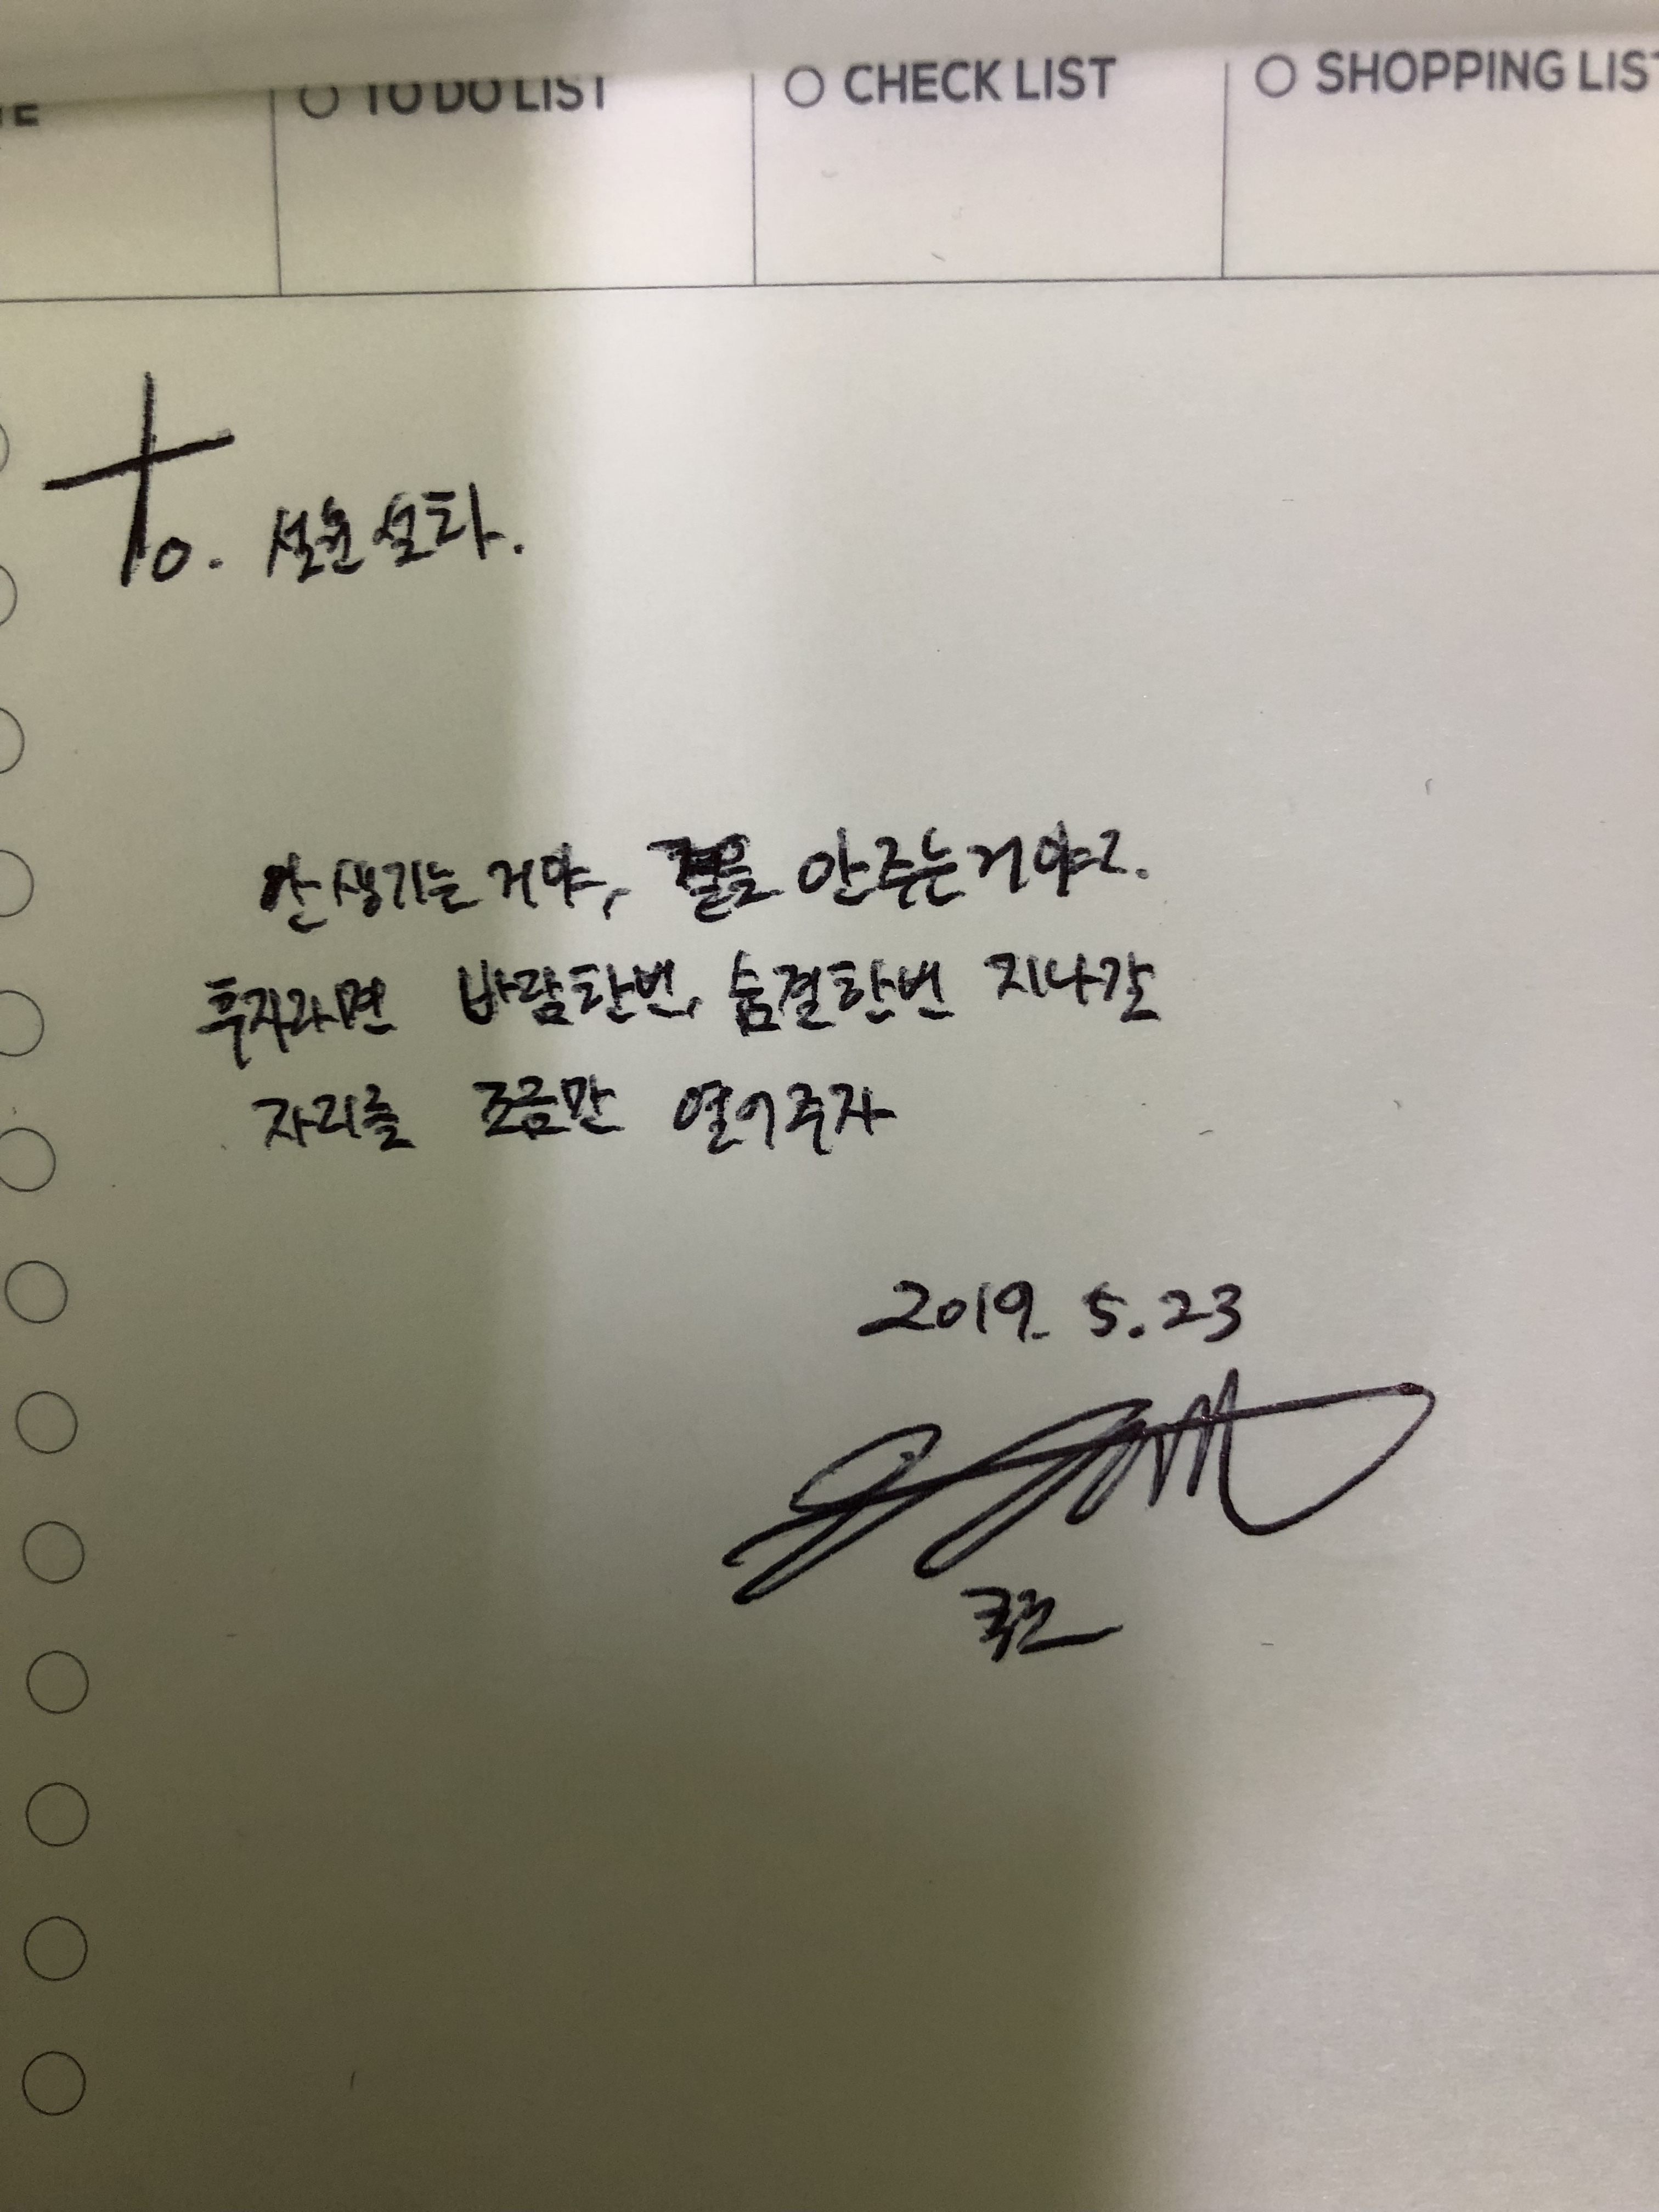 ○ TO DO LIST ○ CHECK LIST ○ SHOPPING LIS
To. 설윤설타.
안생기는거야, 곁을 안주는거야?.
후자라면 바람한번, 숨결한번 지나갈
자리를 조금만 열어주자
2019. 5.23